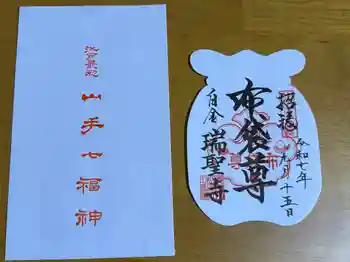 江戸最初
山手七福神
招福
布袋尊
白金 瑞聖寺
令和七年
九月十五日